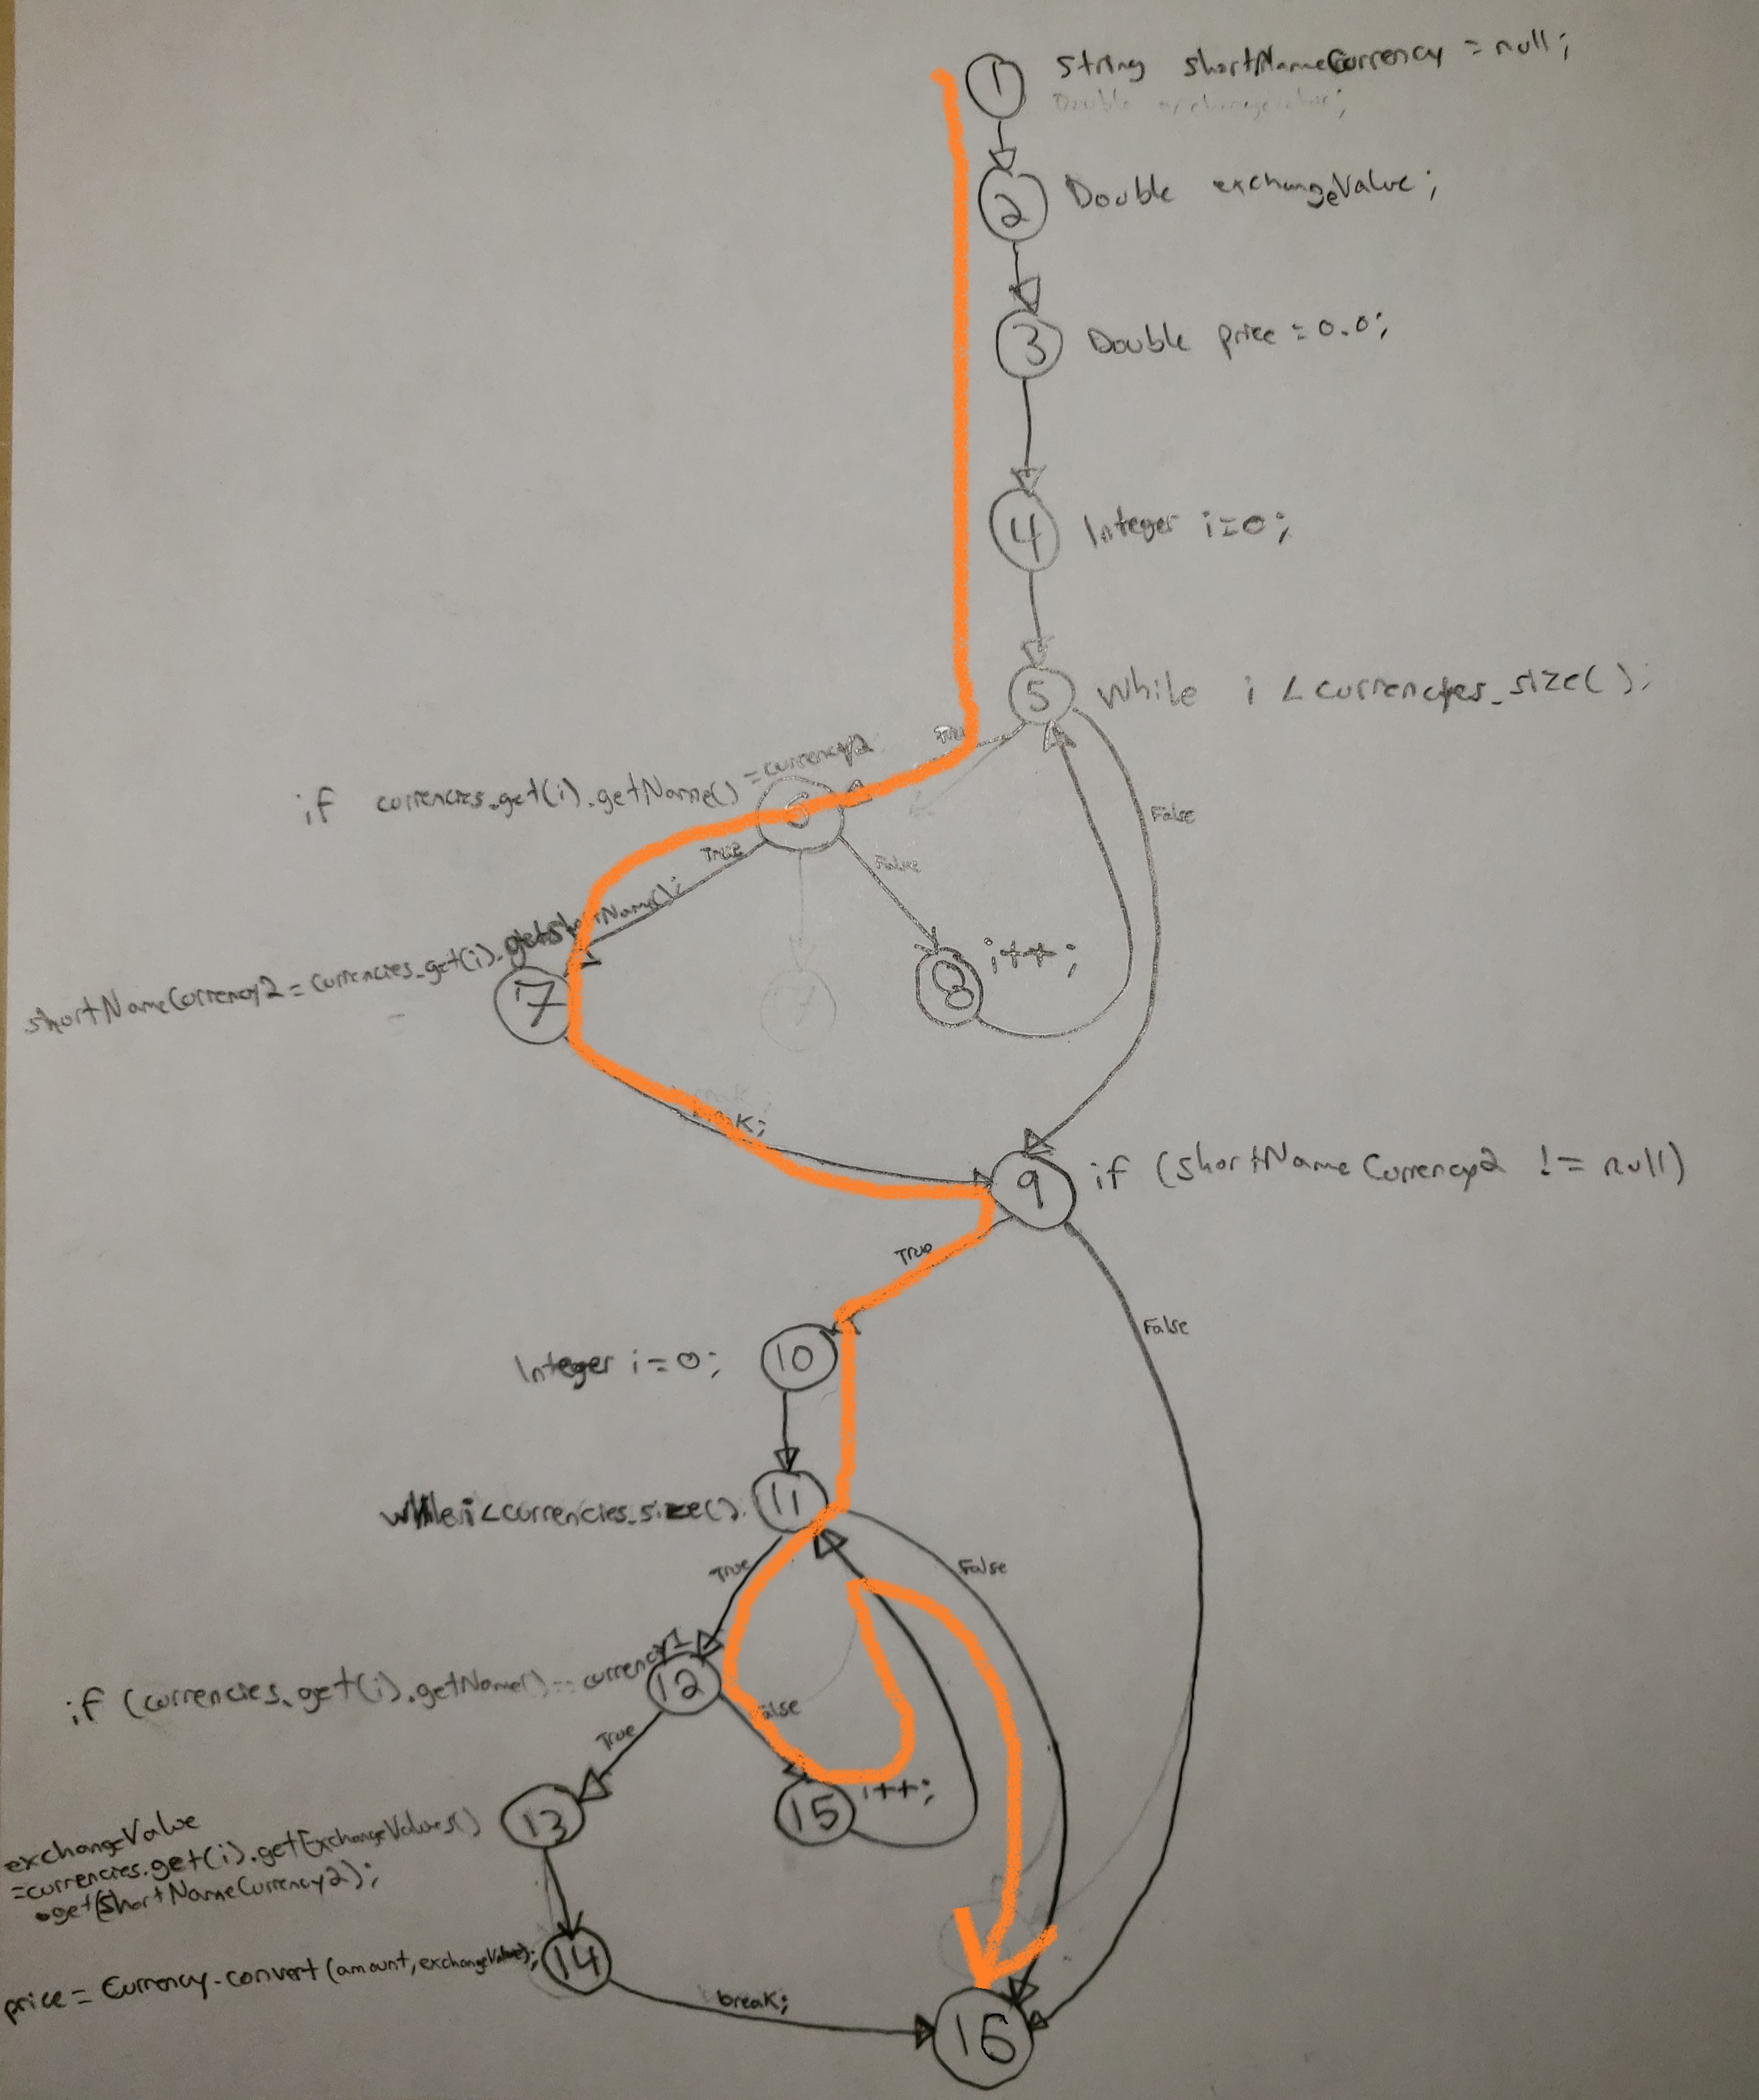 1 String shortNameCurrency = null;
Double exchangeValue;
2 Double exchangeValue;
3 Double price = 0.0;
4 Integer i=0;
5 While i < currencies.size();
True
if currencies.get(i).getName() = currency2
6
False
True
False
shortNameCurrency2 = currencies.get(i).getShortName();
7
7
8 i++;
break;
9 if (shortNameCurrency2 != null)
True
False
Integer i=0; 10
while i < currencies.size(). 11
True
False
if (currencies.get(i).getName() == currency1
12
False
True
13
15 i++;
exchangeValue
=currencies.get(i).getExchangeValues()
.get(shortNameCurrency2);
price = Currency.convert(amount, exchangeValue); 14
break;
16